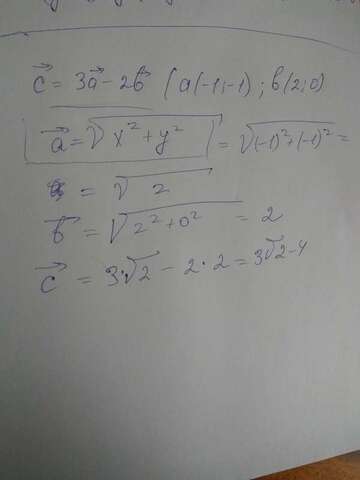 c⃗ = 3a⃗ - 2b⃗ (a(-1;-1); b(2;0)
a⃗ = √x²+y² = √(-1)²+(-1)² =
= √2
b⃗ = √2²+0² = 2
c⃗ = 3·√2 - 2·2 = 3√2-4